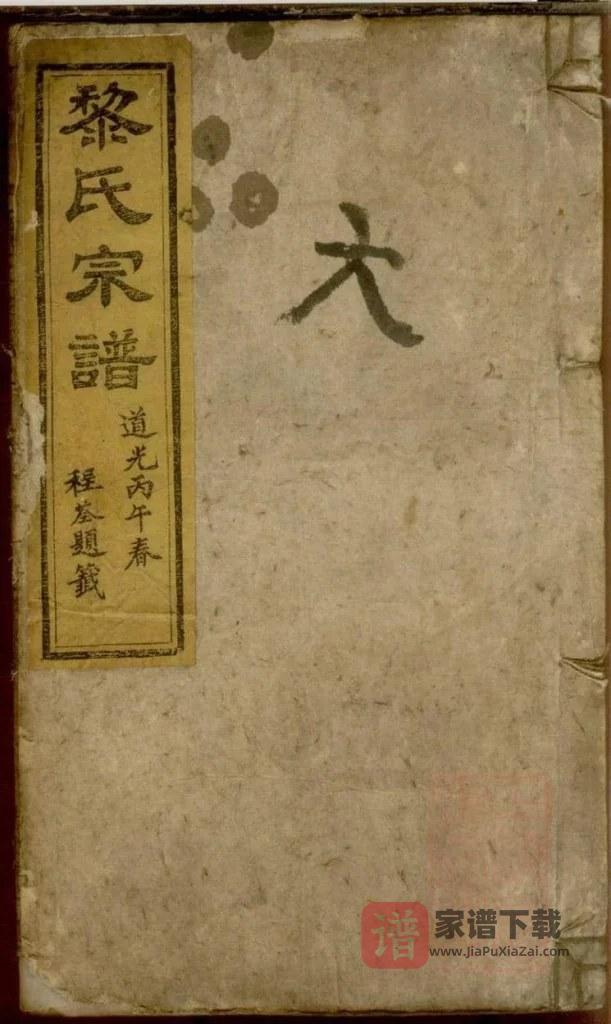 黎氏宗譜
道光丙午春
程荃題籤
六
谱
家谱下载
www.JiaPuXiaZai.com